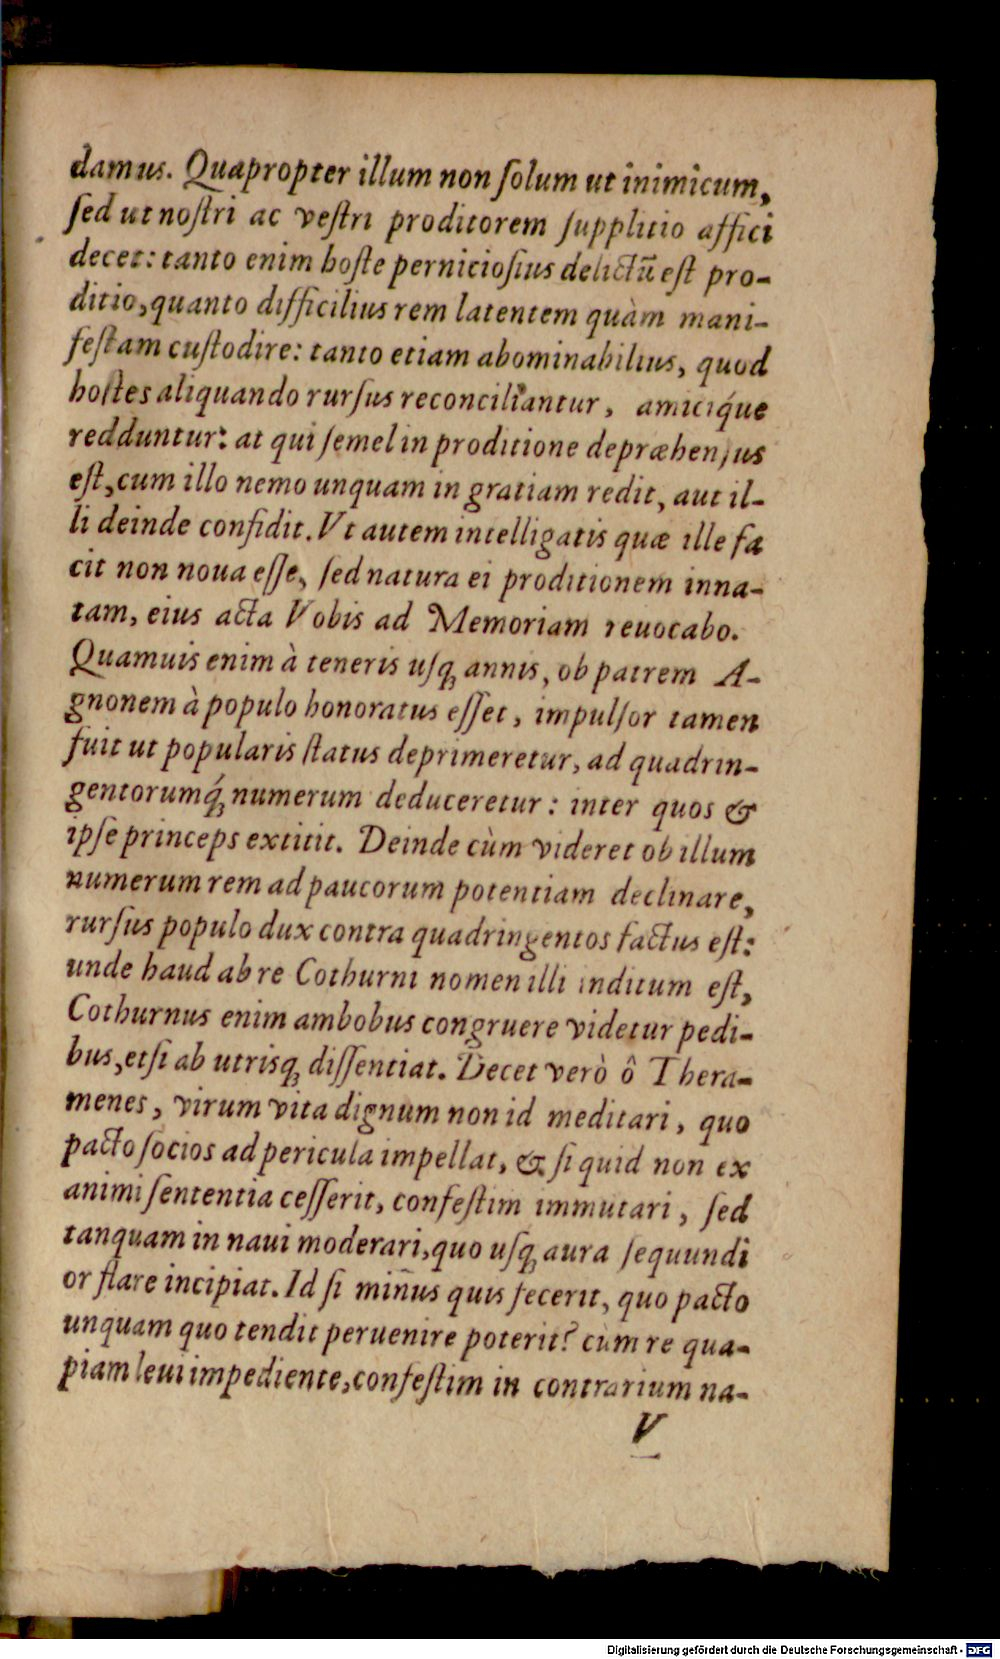 damus. Quapropter illum non ſolum ut inimicum,
ſed ut noſtri ac veſtri proditorem ſupplitio affici
decet: tanto enim hoſte pernicioſius delictū eſt pro-
ditio, quanto difficilius rem latentem quàm mani-
feſtam cuſtodire: tanto etiam abominabilius, quod
hoſtes aliquando rurſus reconciliantur, amiciq́ue
redduntur: at qui ſemel in proditione depræhenſus
eſt, cum illo nemo unquam in gratiam redit, aut il-
li deinde confidit. Vt autem intelligatis quæ ille fa
cit non noua eſſe, ſed natura ei proditionem inna-
tam, eius acta Vobis ad Memoriam reuocabo.
Quamuis enim à teneris uſq; annis, ob patrem A-
gnonem à populo honoratus eſſet, impulſor tamen
fuit ut popularis ſtatus deprimeretur, ad quadrin-
gentorumq́; numerum deduceretur: inter quos &
ipſe princeps extitit. Deinde cùm videret ob illum
numerum rem ad paucorum potentiam declinare,
rurſus populo dux contra quadringentos factus eſt:
unde haud ab re Cothurni nomen illi inditum eſt,
Cothurnus enim ambobus congruere videtur pedi-
bus, etſi ab utrisq; diſſentiat. Decet verò ô Thera-
menes, virum vita dignum non id meditari, quo
pacto ſocios ad pericula impellat, & ſi quid non ex
animi ſententia ceſſerit, confeſtim immutari, ſed
tanquam in naui moderari, quo uſq; aura ſequundi
or flare incipiat. Id ſi miñus quis fecerit, quo pacto
unquam quo tendit peruenire poterit? cùm re qua-
piam leui impediente, confeſtim in contrarium na-
V
Digitalisierung gefördert durch die Deutsche Forschungsgemeinschaft - DFG